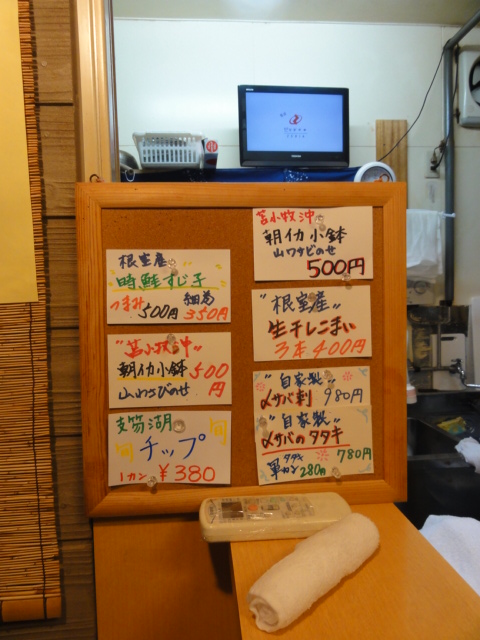 根室産
時鮭すじ子
つまみ 500円 細巻 350円
"苫小牧沖"
朝イカ小鉢 500円
山わさびのせ
支笏湖
旬 チップ 旬
1カン ¥380
苫小牧沖
朝イカ小鉢
山ワサビのせ
500円
"根室産"
生干しこまい
3本 400円
"自家製"
〆サバ刺 980円
"自家製"
〆サバのタタキ
780円
タタキ
軍カン 280円